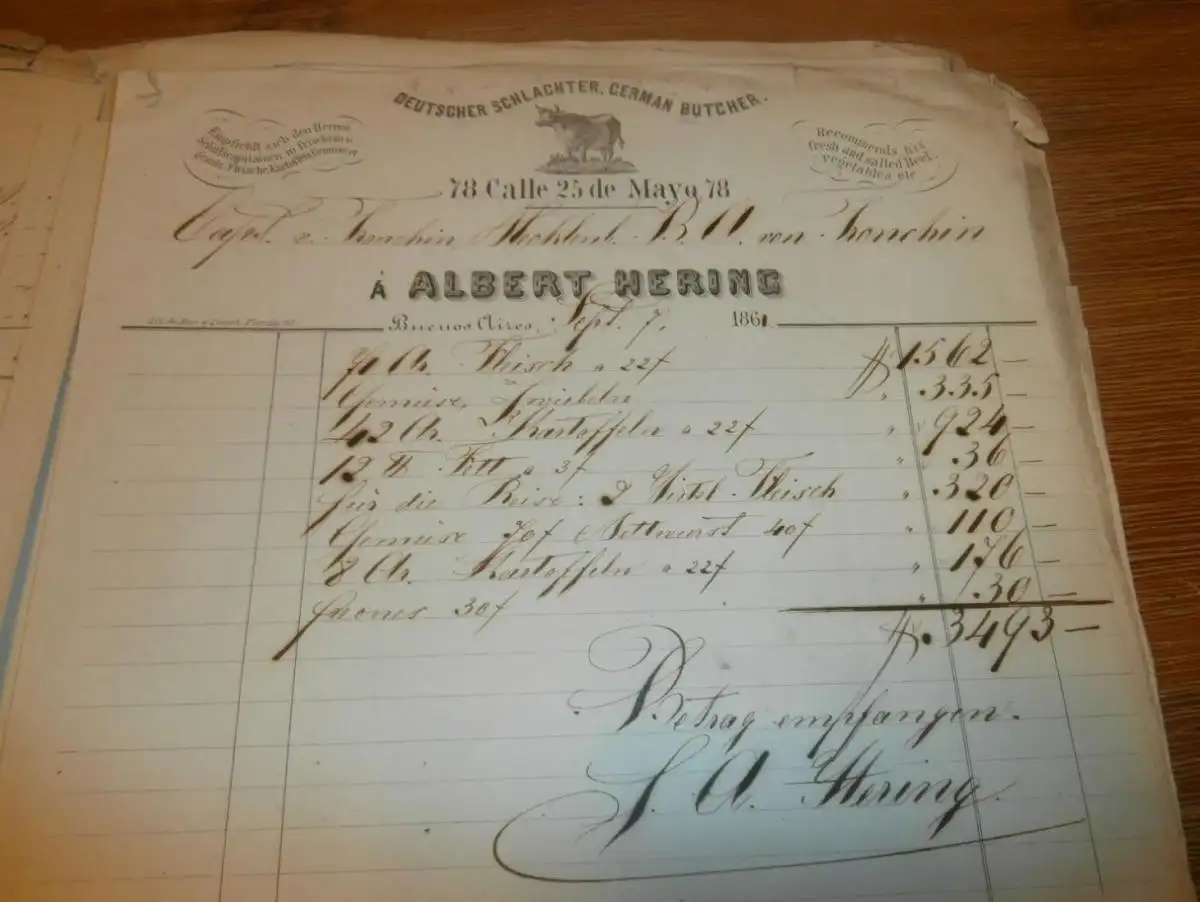 DEUTSCHER SCHLACHTER. GERMAN BUTCHER.
Empfiehlt sich den Herren
Schiffscapitainen m. Frischem u.
Recommends his
fresh and salled Beef.
vegetables etc
78 Calle 25 de Mayo 78
Capt. B. A. von
Á ALBERT HERING
Buenos Aires, Sept. 7. 1861.
71 Ar. Fleisch a 22f $ 1562 —
Gemüse, Zwiebeln " 335 —
42 Ar. Kartoffeln a 22f " 924 —
12 ℔ Fett a 3f " 36 —
für die Reise: 2 Fleisch " 320 —
Gemüse 70f Mettwurst 40f " 110 —
8 Ar. Kartoffeln a 22f " 176 —
30f " 30 —
$. 3493 —
Betrag empfangen.
A. Hering